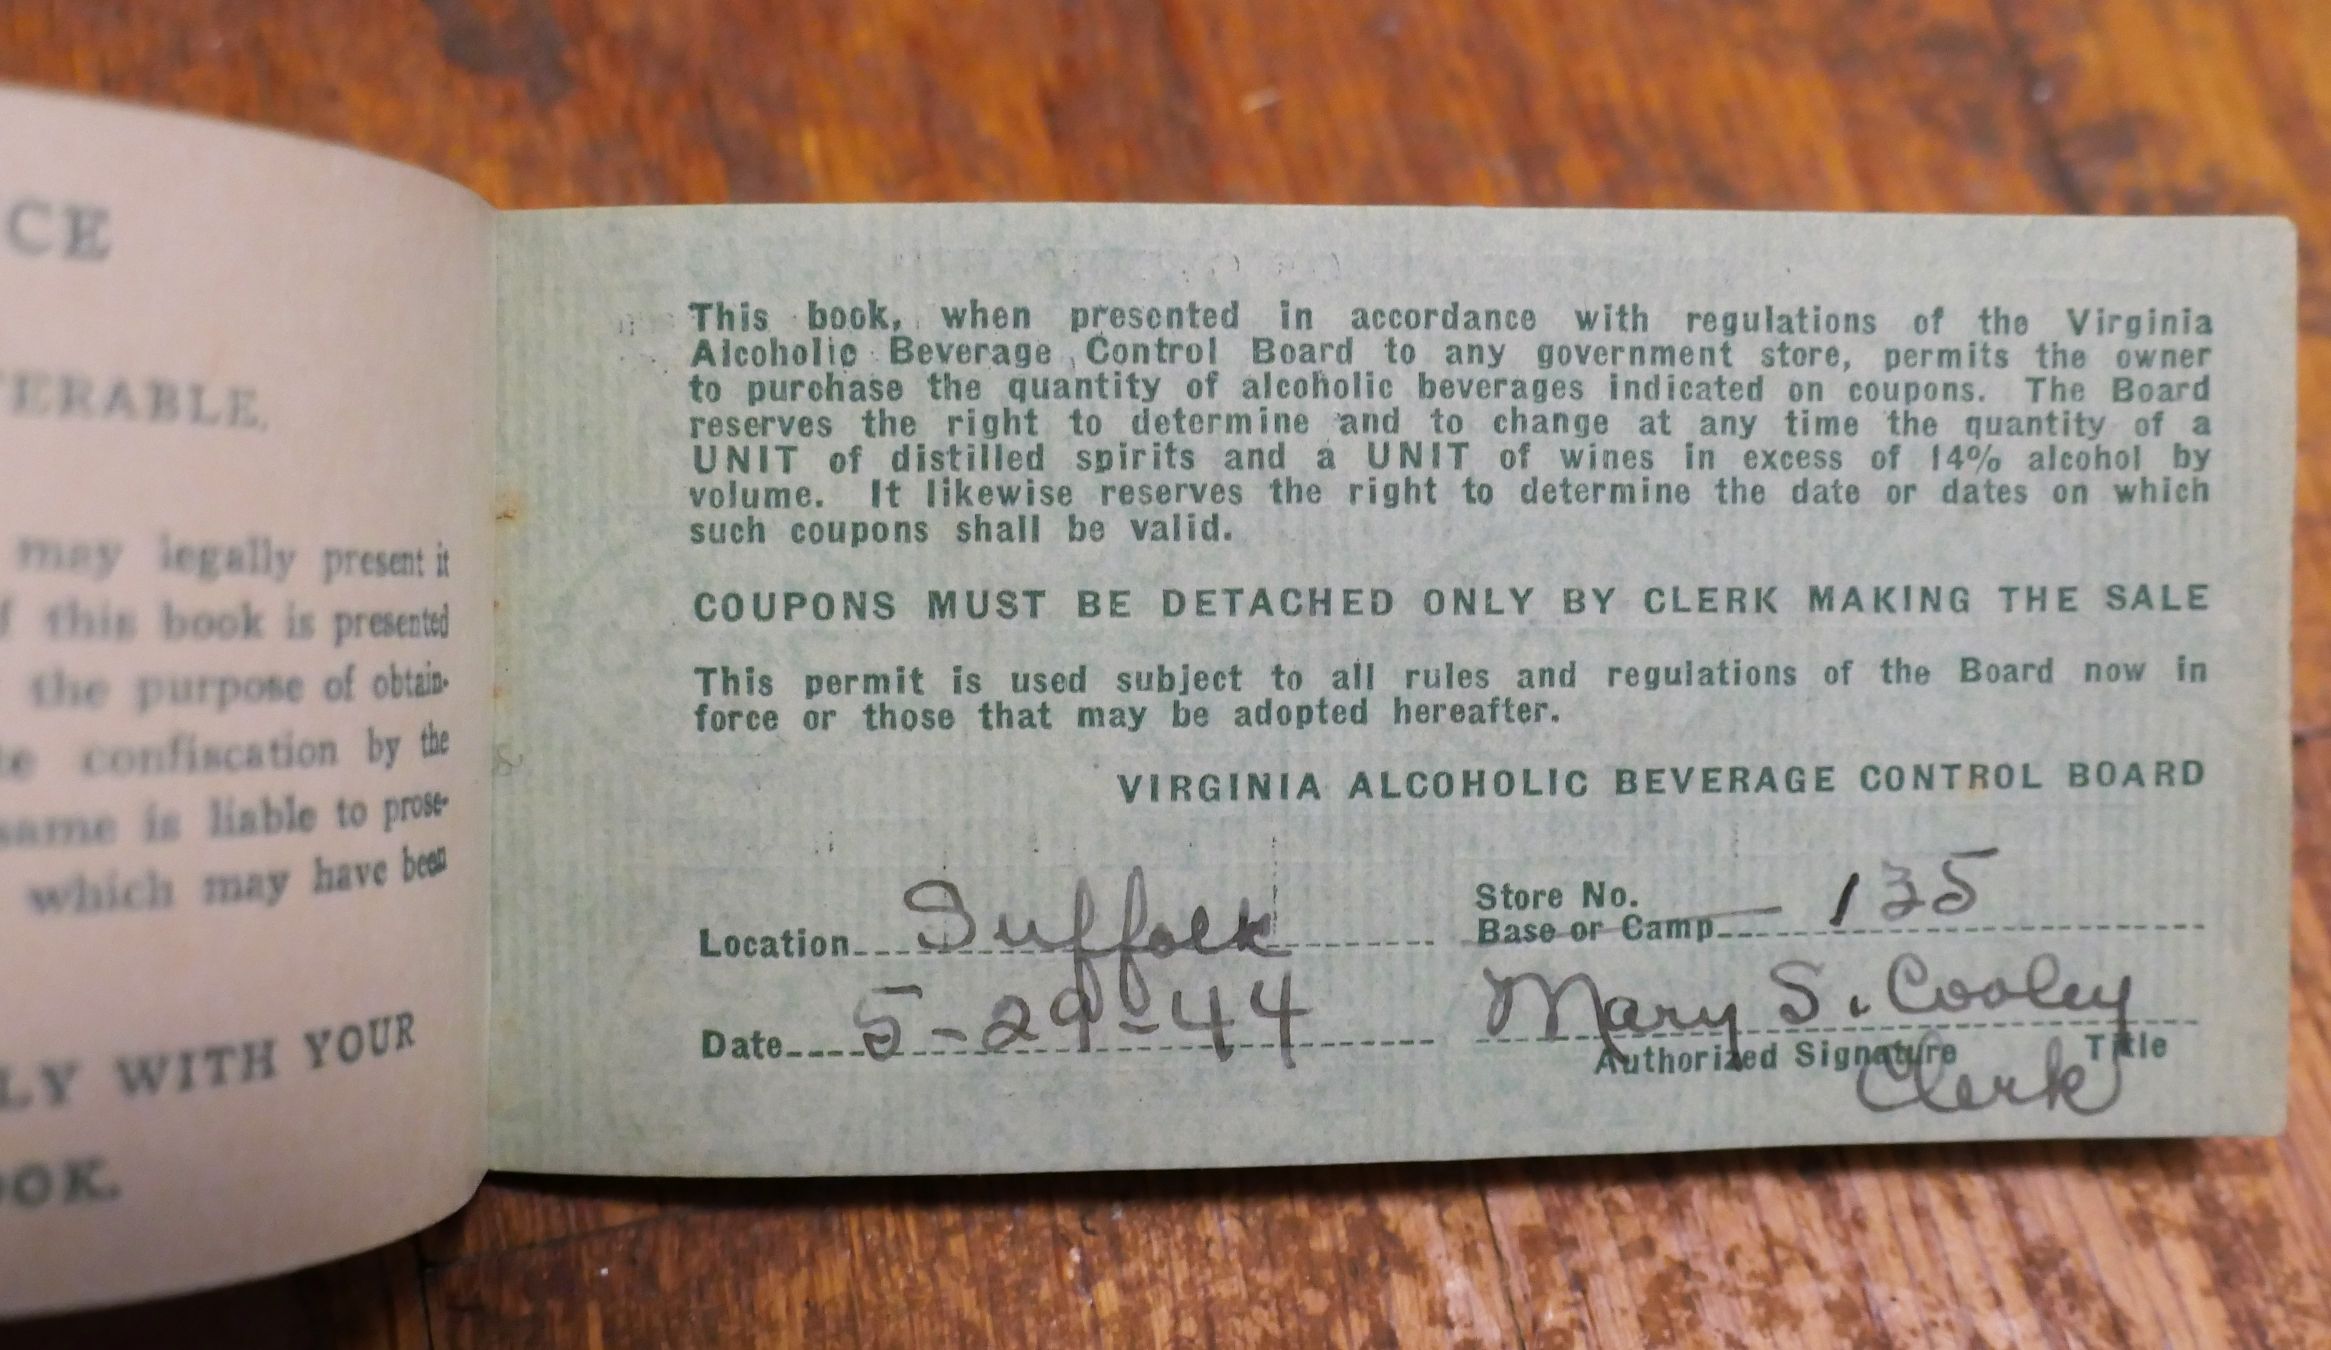 CE
TERABLE.
may legally present it
f this book is presented
the purpose of obtain-
confiscation by the
same is liable to prose-
which may have been
LY WITH YOUR
OOK.
This book, when presented in accordance with regulations of the Virginia
Alcoholic Beverage Control Board to any government store, permits the owner
to purchase the quantity of alcoholic beverages indicated on coupons. The Board
reserves the right to determine and to change at any time the quantity of a
UNIT of distilled spirits and a UNIT of wines in excess of 14% alcohol by
volume. It likewise reserves the right to determine the date or dates on which
such coupons shall be valid.
COUPONS MUST BE DETACHED ONLY BY CLERK MAKING THE SALE
This permit is used subject to all rules and regulations of the Board now in
force or those that may be adopted hereafter.
VIRGINIA ALCOHOLIC BEVERAGE CONTROL BOARD
Location Suffolk
Store No.
Base or Camp 135
Date 5-29-44
Mary S. Cooley
Authorized Signature Title
Clerk